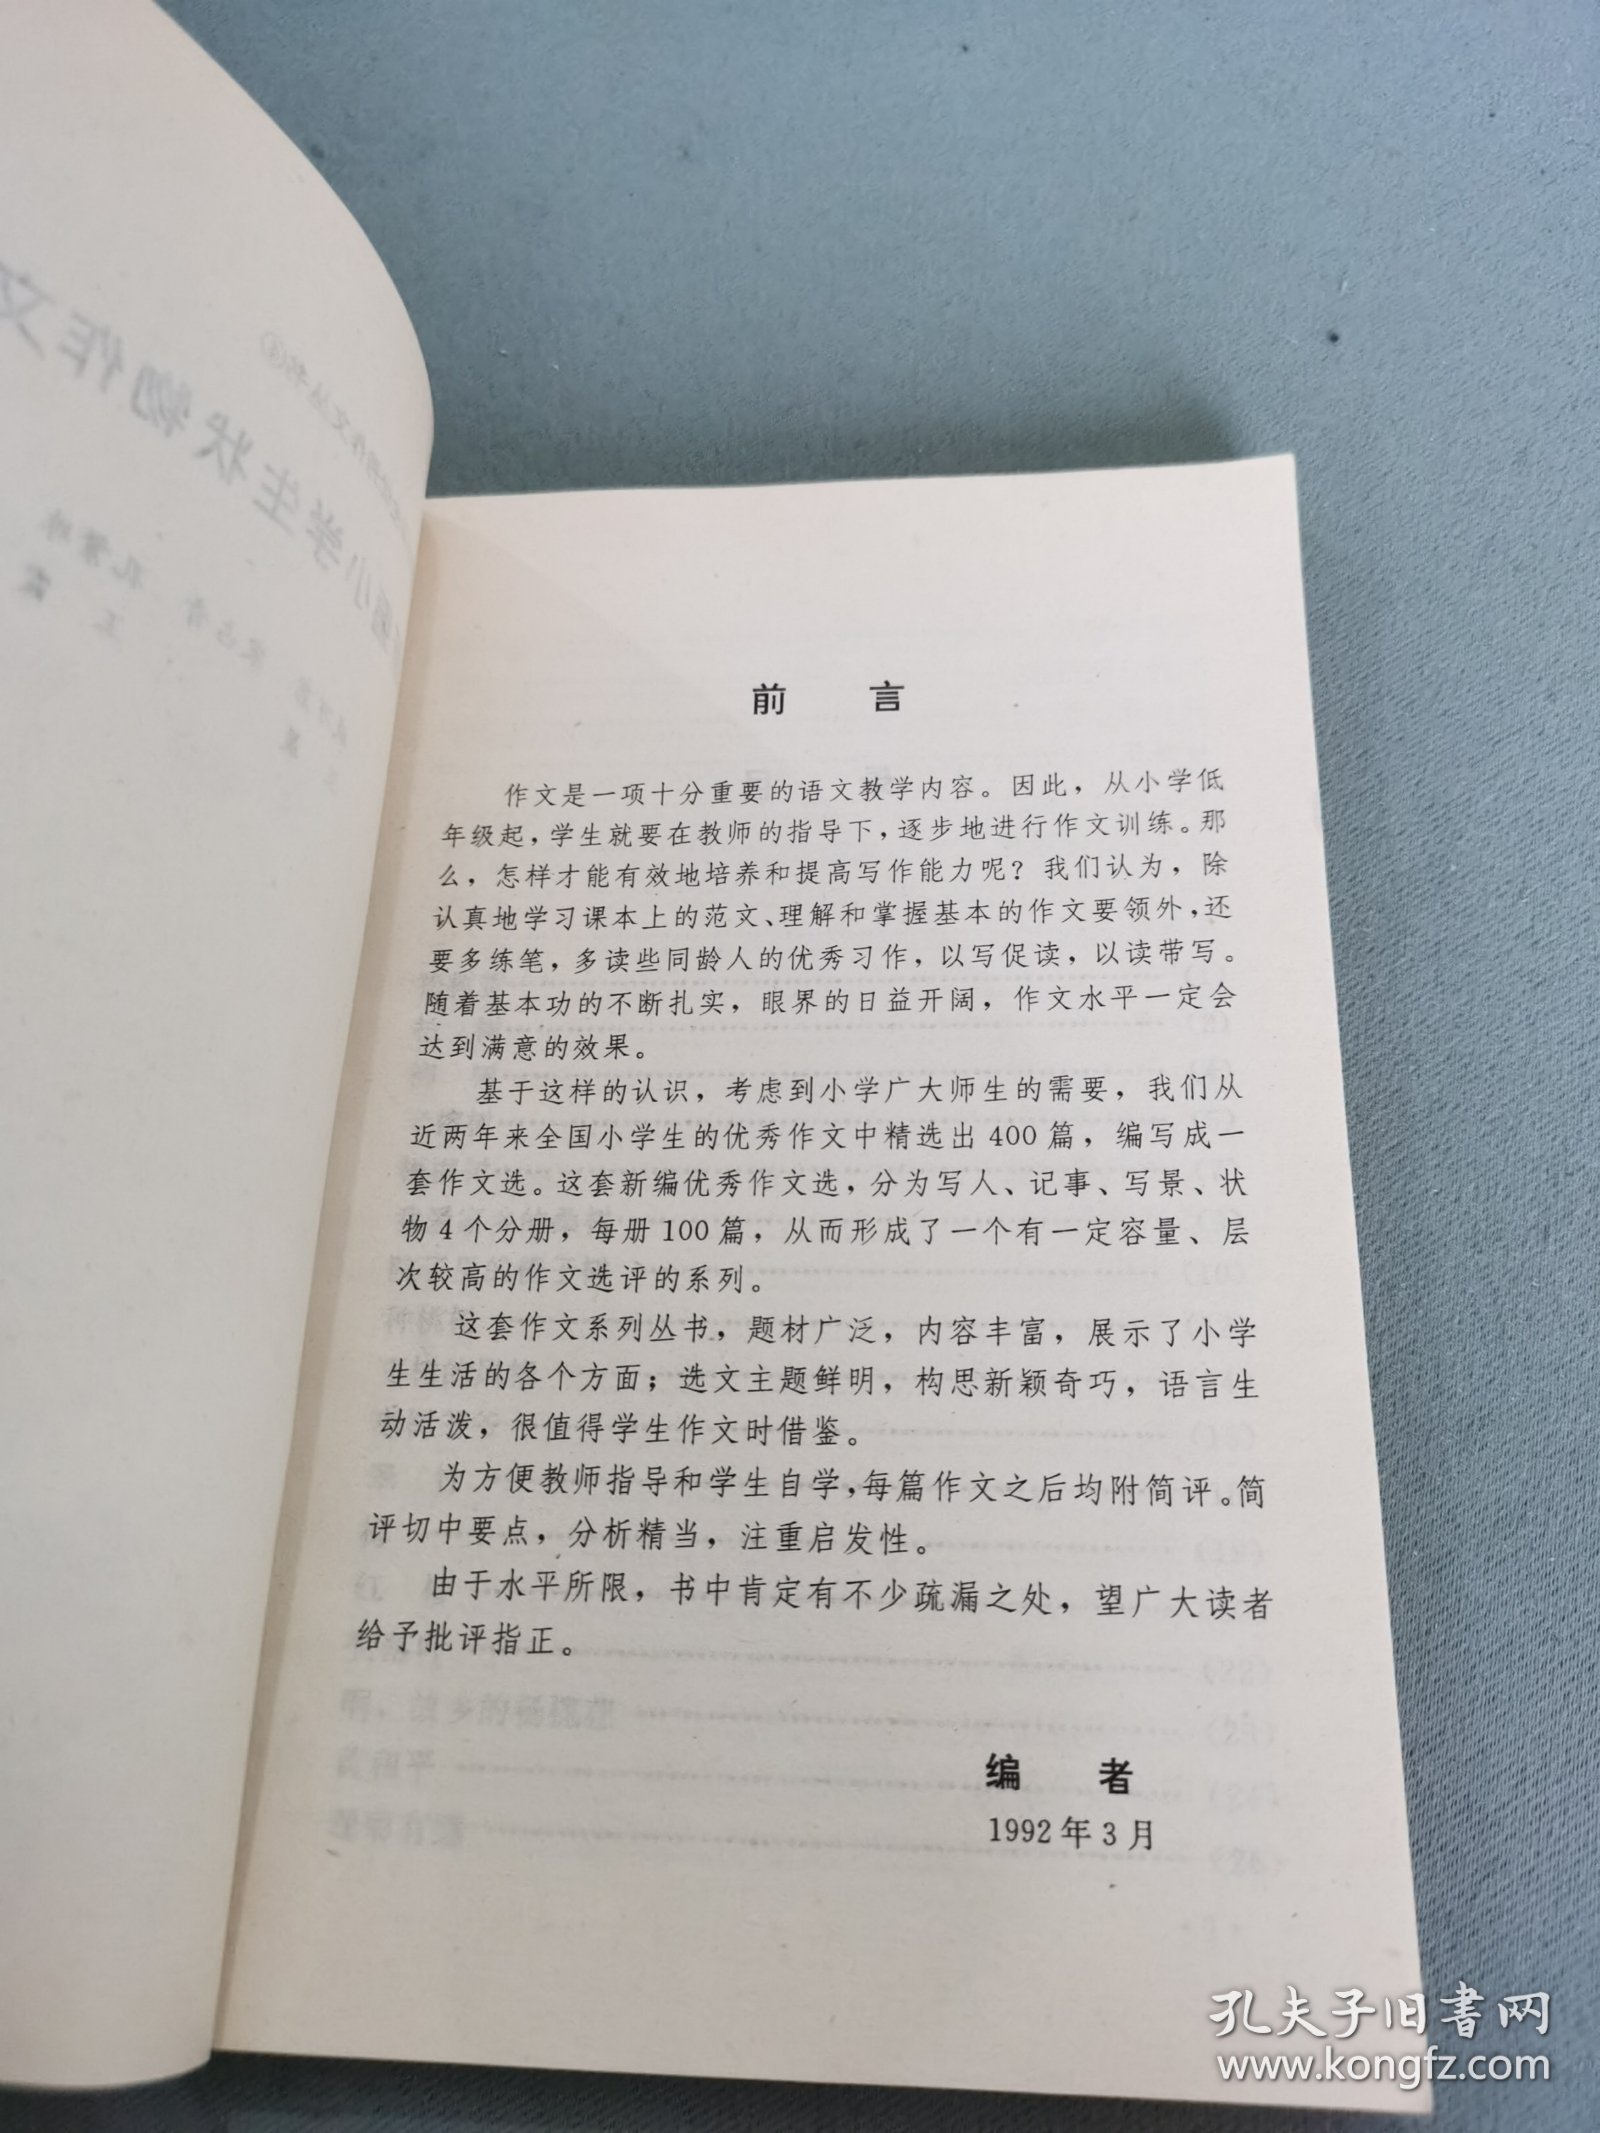 前　言
作文是一项十分重要的语文教学内容。因此，从小学低
年级起，学生就要在教师的指导下，逐步地进行作文训练。那
么，怎样才能有效地培养和提高写作能力呢？我们认为，除
认真地学习课本上的范文、理解和掌握基本的作文要领外，还
要多练笔，多读些同龄人的优秀习作，以写促读，以读带写。
随着基本功的不断扎实，眼界的日益开阔，作文水平一定会
达到满意的效果。
基于这样的认识，考虑到小学广大师生的需要，我们从
近两年来全国小学生的优秀作文中精选出400篇，编写成一
套作文选。这套新编优秀作文选，分为写人、记事、写景、状
物4个分册，每册100篇，从而形成了一个有一定容量、层
次较高的作文选评的系列。
这套作文系列丛书，题材广泛，内容丰富，展示了小学
生生活的各个方面；选文主题鲜明，构思新颖奇巧，语言生
动活泼，很值得学生作文时借鉴。
为方便教师指导和学生自学，每篇作文之后均附简评。简
评切中要点，分析精当，注重启发性。
由于水平所限，书中肯定有不少疏漏之处，望广大读者
给予批评指正。
编　者
1992年3月
孔夫子旧书网
www.kongfz.com